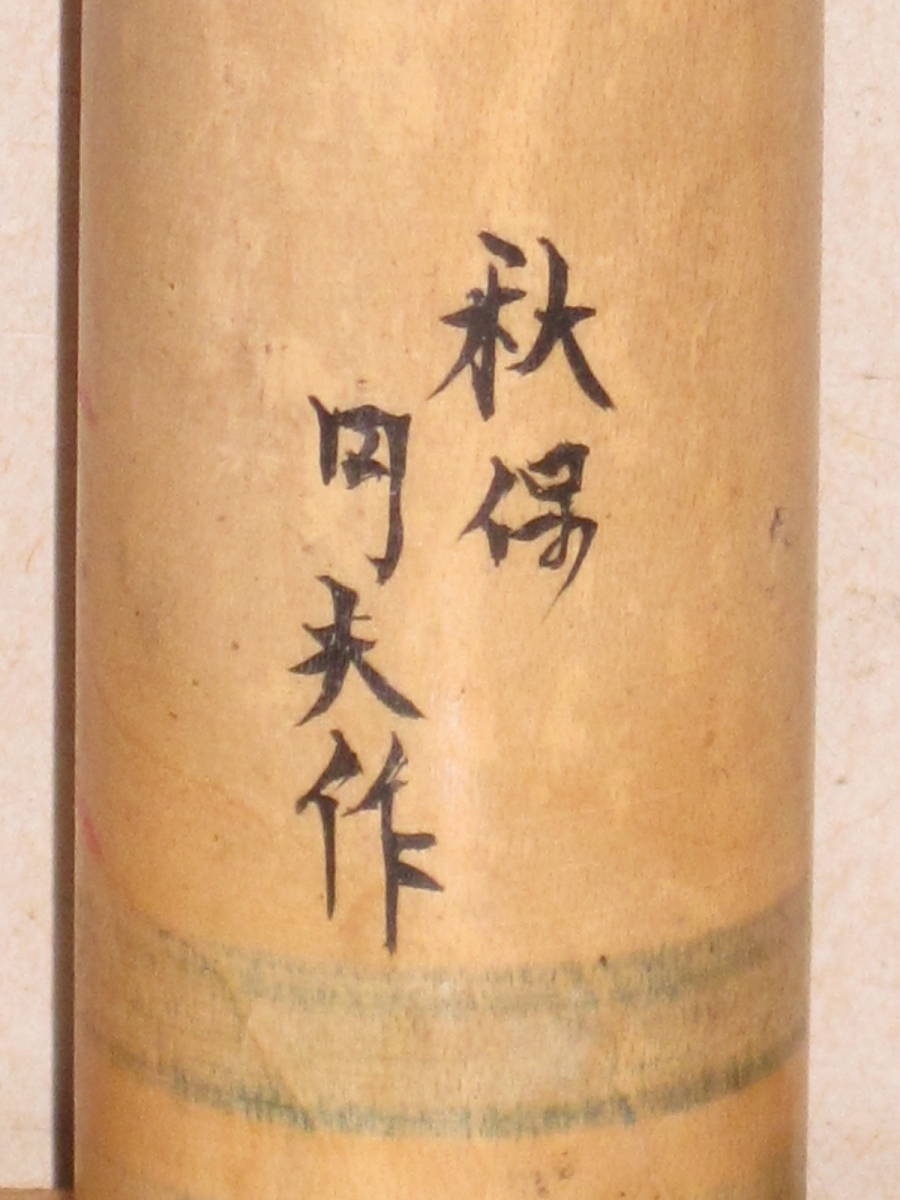 秋保
円夫作